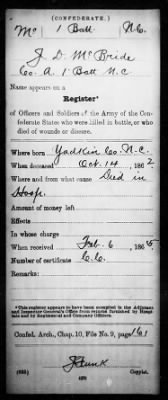 (CONFEDERATE.)
Mc 1 Batt N.C.
J. D. McBride
Co. A. 1 Batt N.C.
Name appears on a
Register*
of Officers and Soldiers of the Army of the Confederate States who were killed in battle, or who
died of wounds or disease.
Where born Yadkin Co. N.C.
When deceased Oct. 14, 1862
Where and from what cause Died in
Hosp.
Amount of money left
Effects
In whose charge
When received Feb. 6, 1865
Number of certificate
Remarks:
*This register appears to have been compiled in the Adjutant
and Inspector General's Office from returns furnished by Hospitals and by Regimental and Company Officers.
Confed. Arch., Chap. 10, File No. 9, page 161
Copyist.